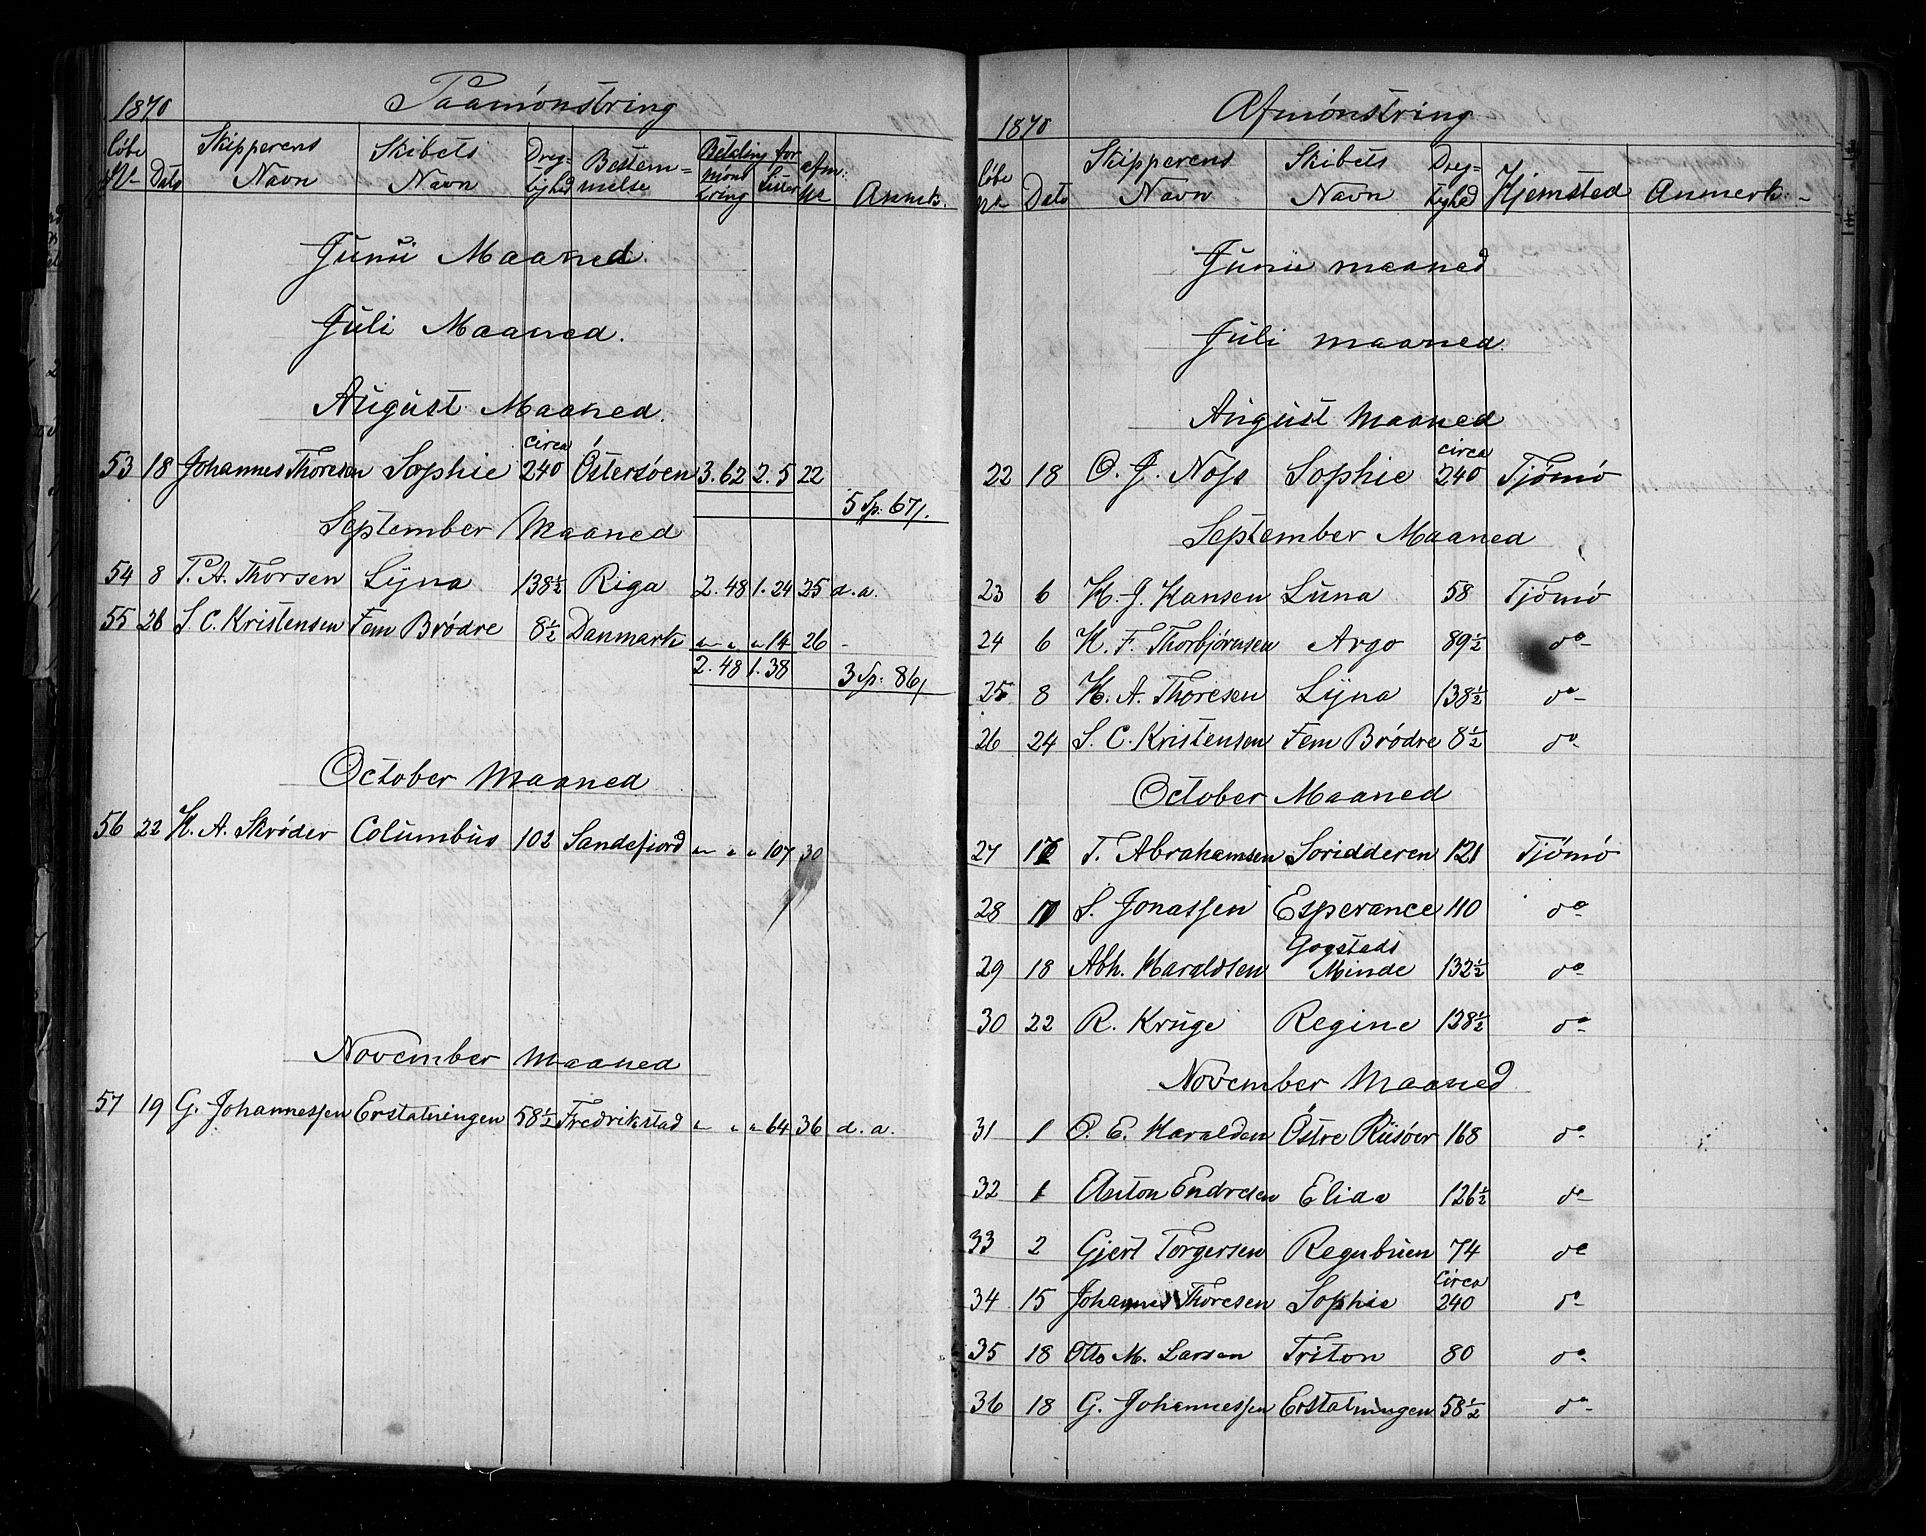 1870 Paamönstring
Löbe No Dato Skipperens Navn Skibets Navn Dreg-tighed Bestem=melse Betaling for mönstring Lister afm: No Anmk.
Junii Maaned.
Juli Maaned.
August Maaned.
53 18 Johannes Thoresen Sophie circa 240 Östersøen 3.62 2.5 22
5 Sp. 67/.
September Maaned
54 8 T. A. Thorsen Lyna 138½ Riga 2.48 1.24 25 d.a.
55 26 S. C. Kristensen Fem Brödre 8½ Danmark " " " 14 26 -
2.48 1.38 3 Sp. 86/
October Maaned
56 22 H. A. Skröder Columbus 102 Sandefiord " " " 107 30
November Maaned
57 19 G. Johannessen Erstatningen 58½ Fredrikstad " " " 64 36 d.a.
1870 Afmönstring
Löbe No Dato Skipperens Navn Skibets Navn Dreg-tighed Hjemsted Anmerk:
Junii maaned
Juli maaned.
August Maaned
22 18 O. J. Nøss Sophie circa 240 Tjömö
September Maaned
23 6 H. J. Hansen Luna 58 Tjömö
24 6 H. F. Thorbjörnsen Argo 89½ do
25 8 H. A. Thoresen Lyna 138½ do
26 24 S. C. Kristensen Fem Brödre 8½ do
October Maaned
27 17 T. Abrahamsen Soridderen 121 Tjömö
28 17 S. Jonassen Esperance 110 do
29 18 Abh. Haraldsen Gogstads Minde 132½ do
30 22 R. Kruge Regine 138½ do
November Maaned
31 1 O. E. Haralden Östre Riisöer 168 do
32 1 Anton Endresen Elida 126½ do
33 2 Gjert Torgersen Regnbuen 74 do
34 15 Johannes Thoresen Sophie circa 240 do
35 18 Otto M. Larsen Triton 80 do
36 18 G. Johannessen Erstatningen 58½ do